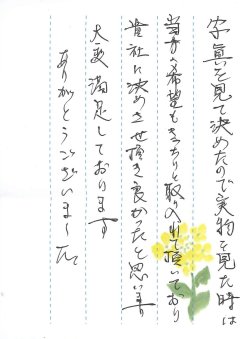 写真を見て決めたので実物を見た時は
当方の希望もきちりと取り入れて頂いており
貴社に決めさせ頂き良かたと思います
大変満足しております
ありがとうございました。